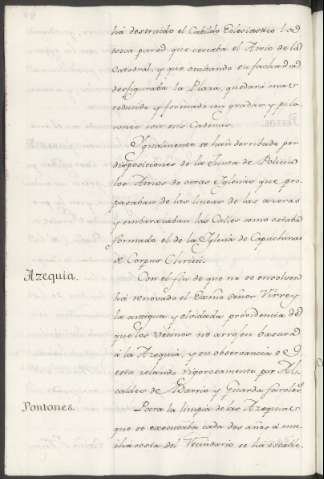 ha destruido el Cabildo Eclesiastico la
tosca pared que cercaba el Atrio de la
Catedral, y que ocultando su fachada
desfiguraba la Plaza, quedando mas
reducido y formado con gradas y pila
con sus Cadenas.
Igualmente se han derribado por
disposiciones de la Junta de Policia
los Atrios de otras Iglesias que pro
pasaban de las lineas de las aceras
y embarazaban las Calles como estaba
formado el de la Iglesia de Capuchinas
de Corpus Christi.
Azequia.
Con el fin de que no se ensolven
ha renovado el Exmo Señor Virrey
la antigua y olvidada providencia de
que los vecinos no arrojen basura
á la Azequia, y su observancia se
esta celando vigorosamente por Al
caldes de Barrio y Guarda faroles.
Pontones.
Para la limpia de las Azequias
que se executaba cada dos años á
costa del Vecindario se ha estable